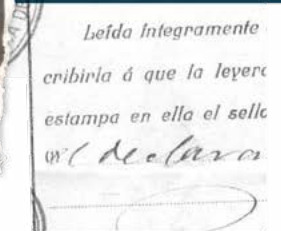 Leída íntegramente
cribirla á que la leyera
estampa en ella el sello
el declaran